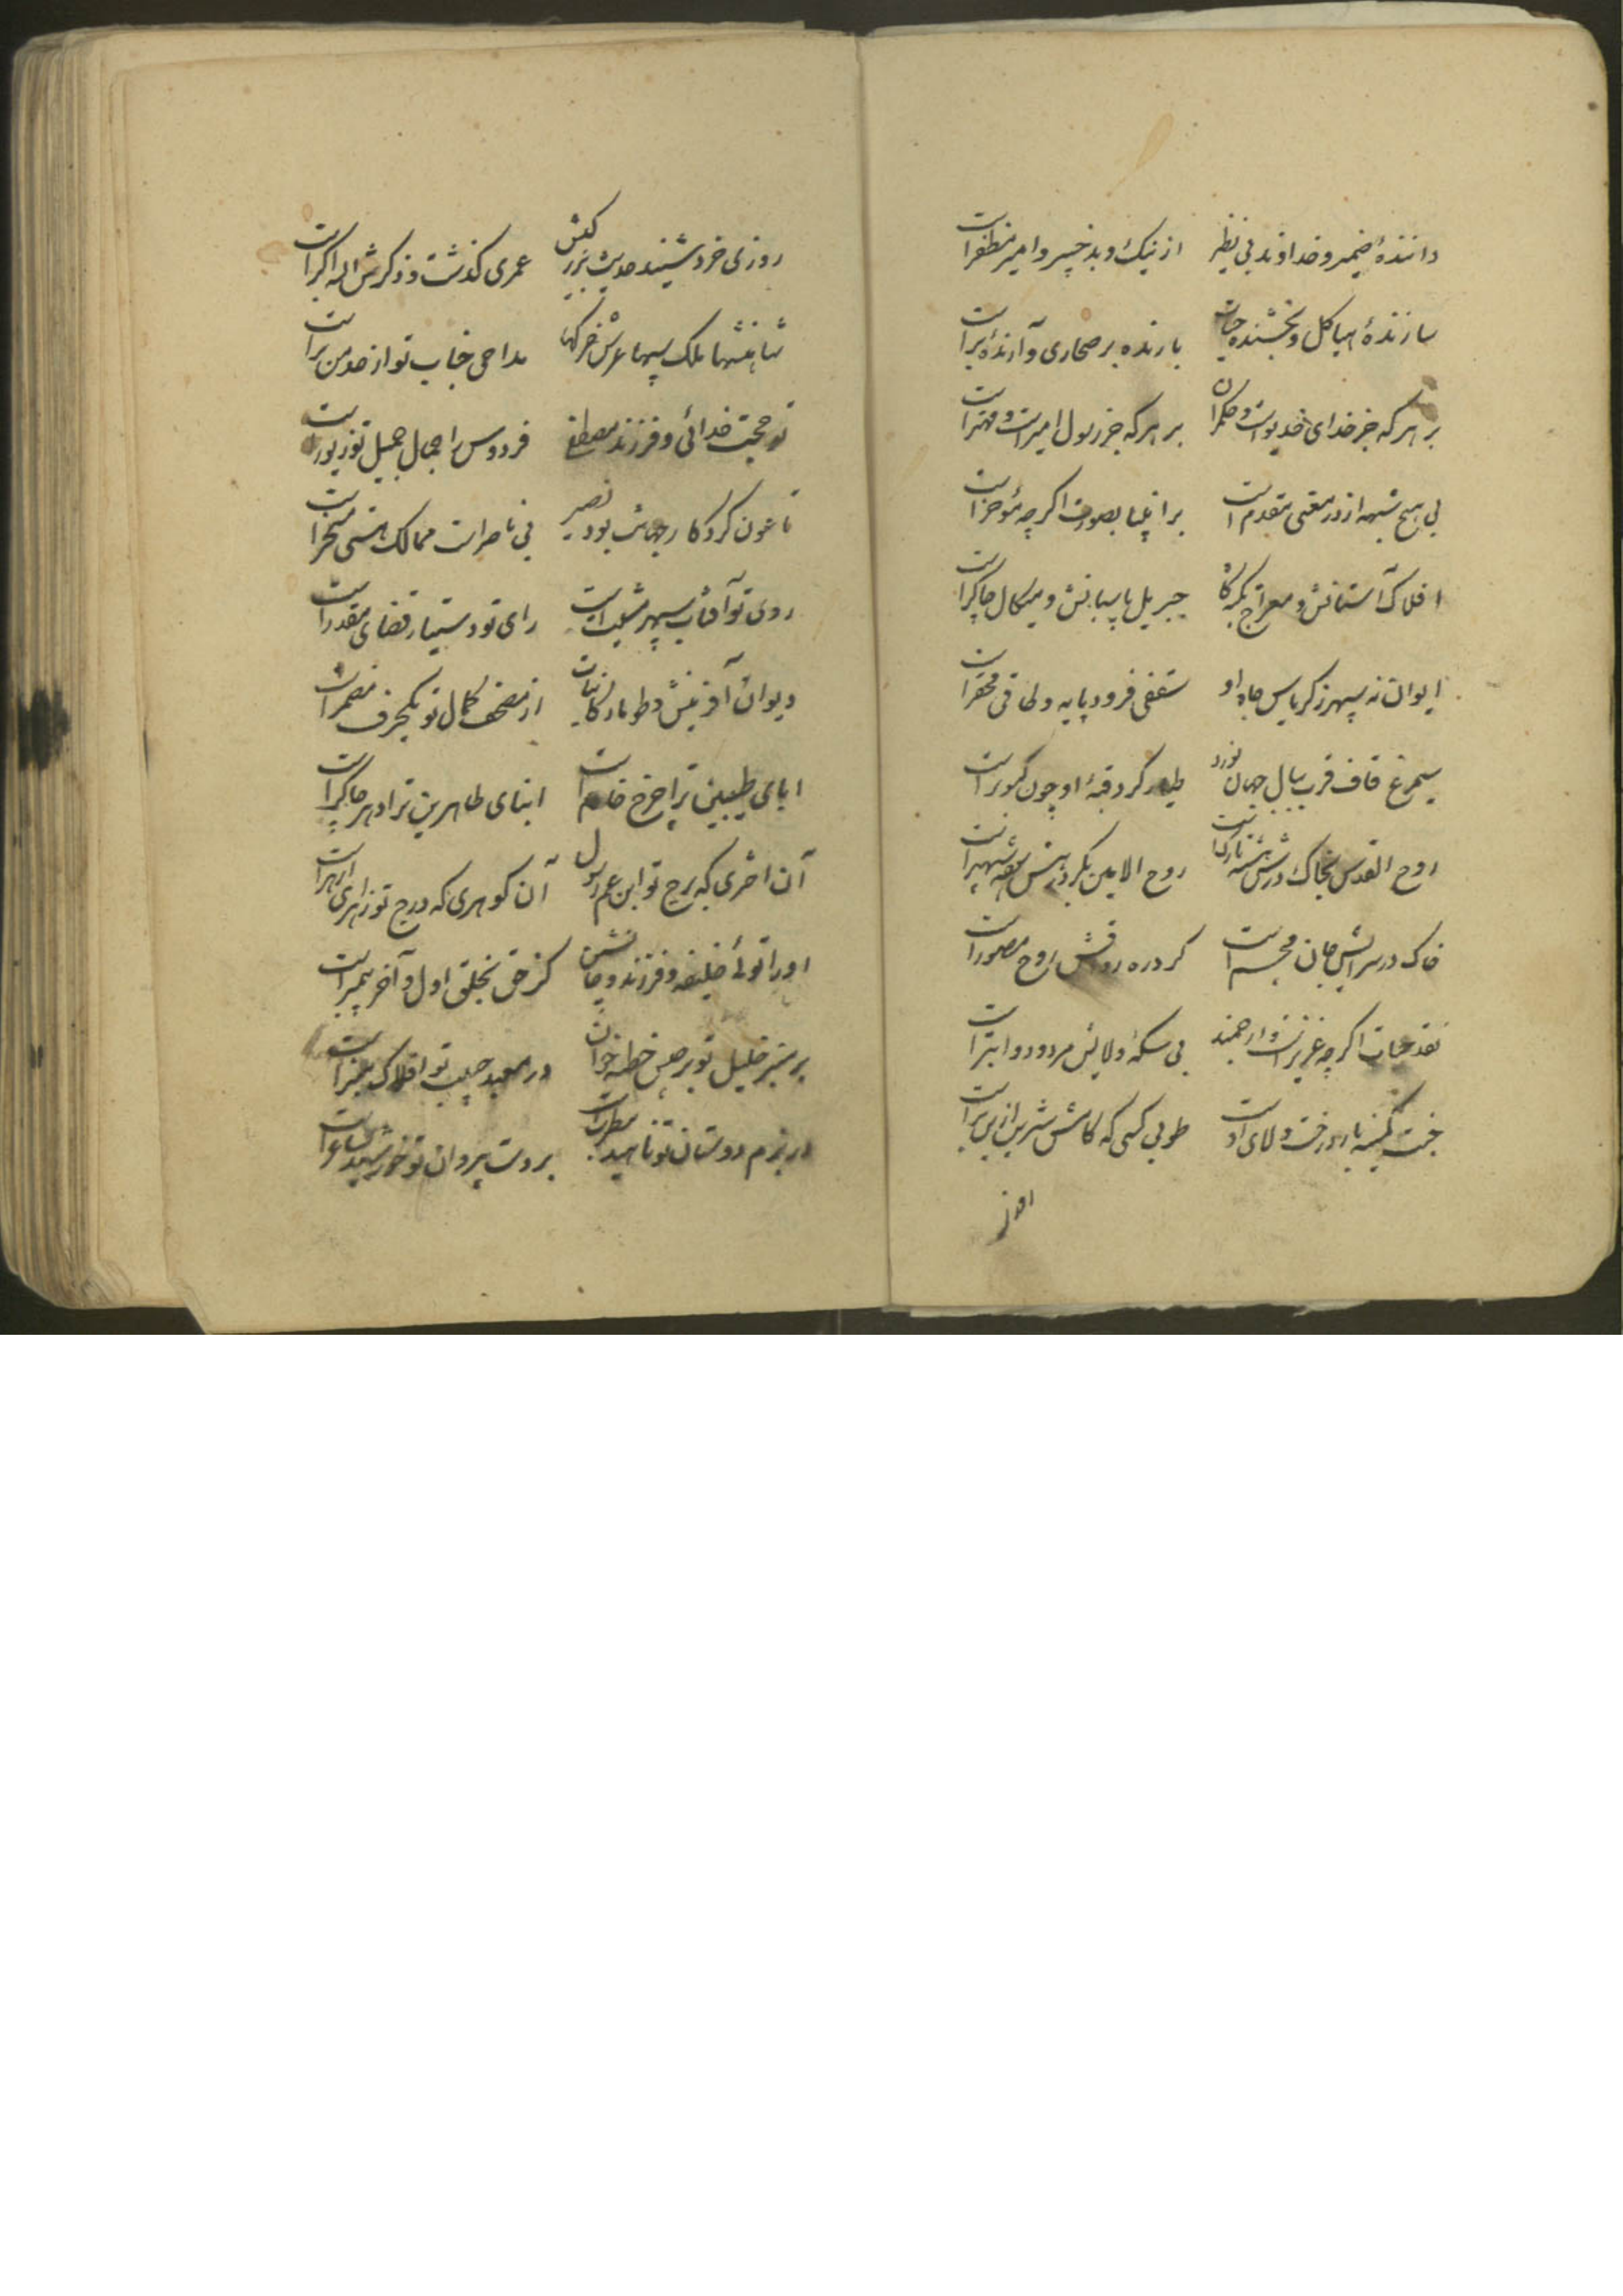 دانندهٔ ضمیر و خداوند بی نظیر از نیک و بد خبیر و امیر مظفر است
سازندهٔ هیاکل و بخشنده حیات بارنده بر صحاری و آرندهٔ بر است
بر هر که جز خدای خدیو است و حکمران بر هر که جز رسول امیر است و مهتر است
بی هیچ شبهه از در معنی مقدم است بر انبیا بصورت اگر چه مؤخر است
افلاک آستانش و معراج تکیه گاه جبریل پاسبانش و میکال چاکر است
ایوان نه سپهر ز کریاس جاه او سقفی فرود پایه و طاقی محقر است
سیمرغ قاف قرب ببال جهان نورد طیار گرد قبهٔ او چون کبوتر است
روح القدس بخاک درش روح الامین بگرد
خاک در سرایش جان مجسم است گرد ره رواقش روح مصور است
نقد حیات اگر چه عزیز است و ارجمند بی سکهٔ ولایش مردود و ابتر است
ولای او طوبی کسی که کامش شیرین ازین بر است
روزی خرد شنید حدیث بزرگیش عمری گذشت و ذکرش الله اکبر است
شاهنشها ملک سپها عرش خرگها مداحی جناب تو از حد من بر است
تو حجت خدائی و فرزند مصطفی فردوس را جمال جمیل تو زیور است
تا عون کردگار جهانت بود نصیر بی ناصرات ممالک هستی مسخر است
روی تو آفتاب سپهر مشیت است رای تو دستیار قضای مقدر است
دیوان آفرینش و طومار کاینات از مصحف کمال تو یکحرف مضمر است
ابای طیبین ترا چرخ خادم است ابنای طاهرین ترا دهر چاکر است
آن اختری که برج تو ابن عم رسول آن گوهری که درج تو زهرای ازهر است
او را توئی خلیفه و فرزند و جانشین کز حق بخلق اول و آخر پیمبر است
بر منبر خلیل تو برجیس خطبه خوان در معبد حبیب تو افلاک منبر است
در بزم دوستان تو ناهید مطرب است بر دست پیروان تو خورشید ساغر است